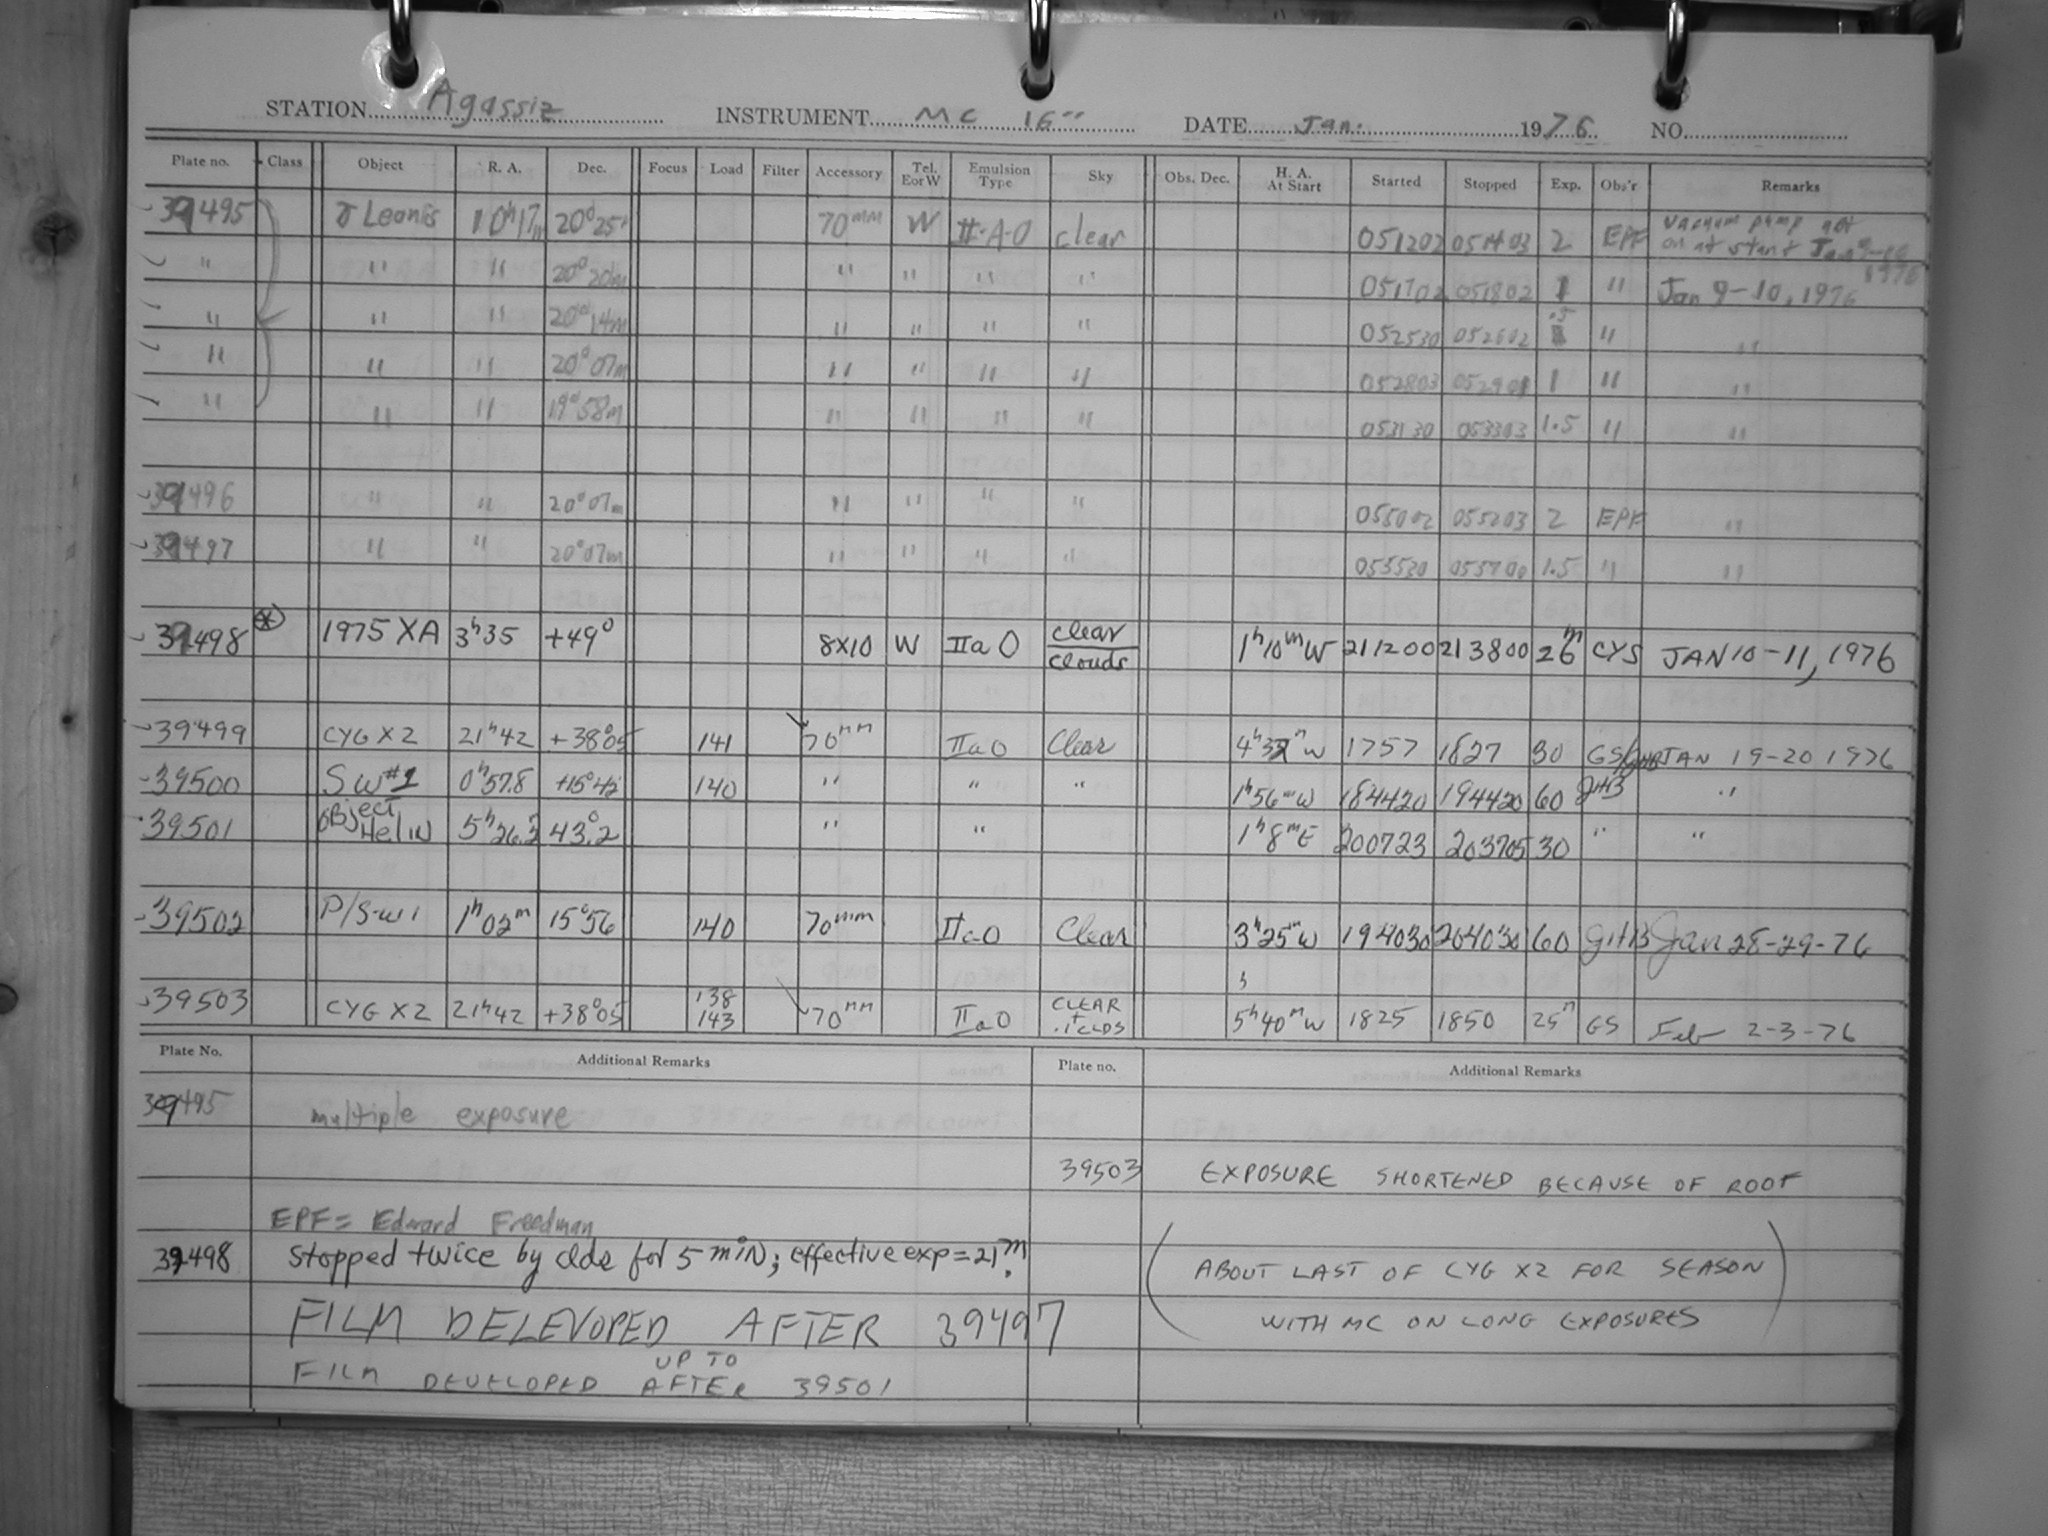 STATION Agassiz INSTRUMENT MC 16" DATE Jan. 1976 NO.
Plate no. Class Object R. A. Dec. Focus Load Filter Accessory Tel. E or W Emulsion Type Sky Obs. Dec. H. A. At Start Started Stopped Exp. Obs'r Remarks
39495 γ Leonis 10h17m 20°25' 70mm W II-A-O clear 051202 051403 2 EPF vacuum pump not on at start Jan 9-10 1976
" " " 20°20m " " " " 051702 051802 1 " Jan 9-10, 1976
" " " 20°14m " " " " 052530 052602 .5 " "
" " " 20°07m " " " " 052803 052901 1 " "
" " " 19°58m " " " " 053130 053303 1.5 " "
39496 " " 20°07m " " " " 055002 055203 2 EPF "
39497 " " 20°07m " " " " 055530 055700 1.5 " "
39498 * 1975 XA 3h35 +49° 8x10 W IIaO clear clouds 1h10mW 211200 213800 26m CYS JAN 10-11, 1976
39499 CYG X2 21h42 +38°05 141 70mm IIaO Clear 4h32mW 1757 1827 30 GS JAN 19-20 1976
39500 SW#1 0h57.8 +15°42 140 " " " 1h56mW 184420 194420 60 JHB "
39501 Object Helin 5h26.2 43°.2 " " 1h8mE 200723 203705 30 " "
39502 P/S-W1 1h02m 15°56 140 70mm IIaO Clear 3h25mW 194030 204030 60 JHB Jan 28-29-76
39503 CYG X2 21h42 +38°05 138 143 70mm IIaO CLEAR + .1 CLDS 5h40mW 1825 1850 25m GS Feb 2-3-76
Plate No. Additional Remarks Plate no. Additional Remarks
39495 multiple exposure
39503 EXPOSURE SHORTENED BECAUSE OF ROOF
EPF = Edward Freedman
39498 Stopped twice by clds for 5 min; effective exp = 21m.
(ABOUT LAST OF CYG X2 FOR SEASON
WITH MC ON LONG EXPOSURES)
FILM DELEVOPED AFTER 39497
UP TO
FILM DEVELOPED AFTER 39501